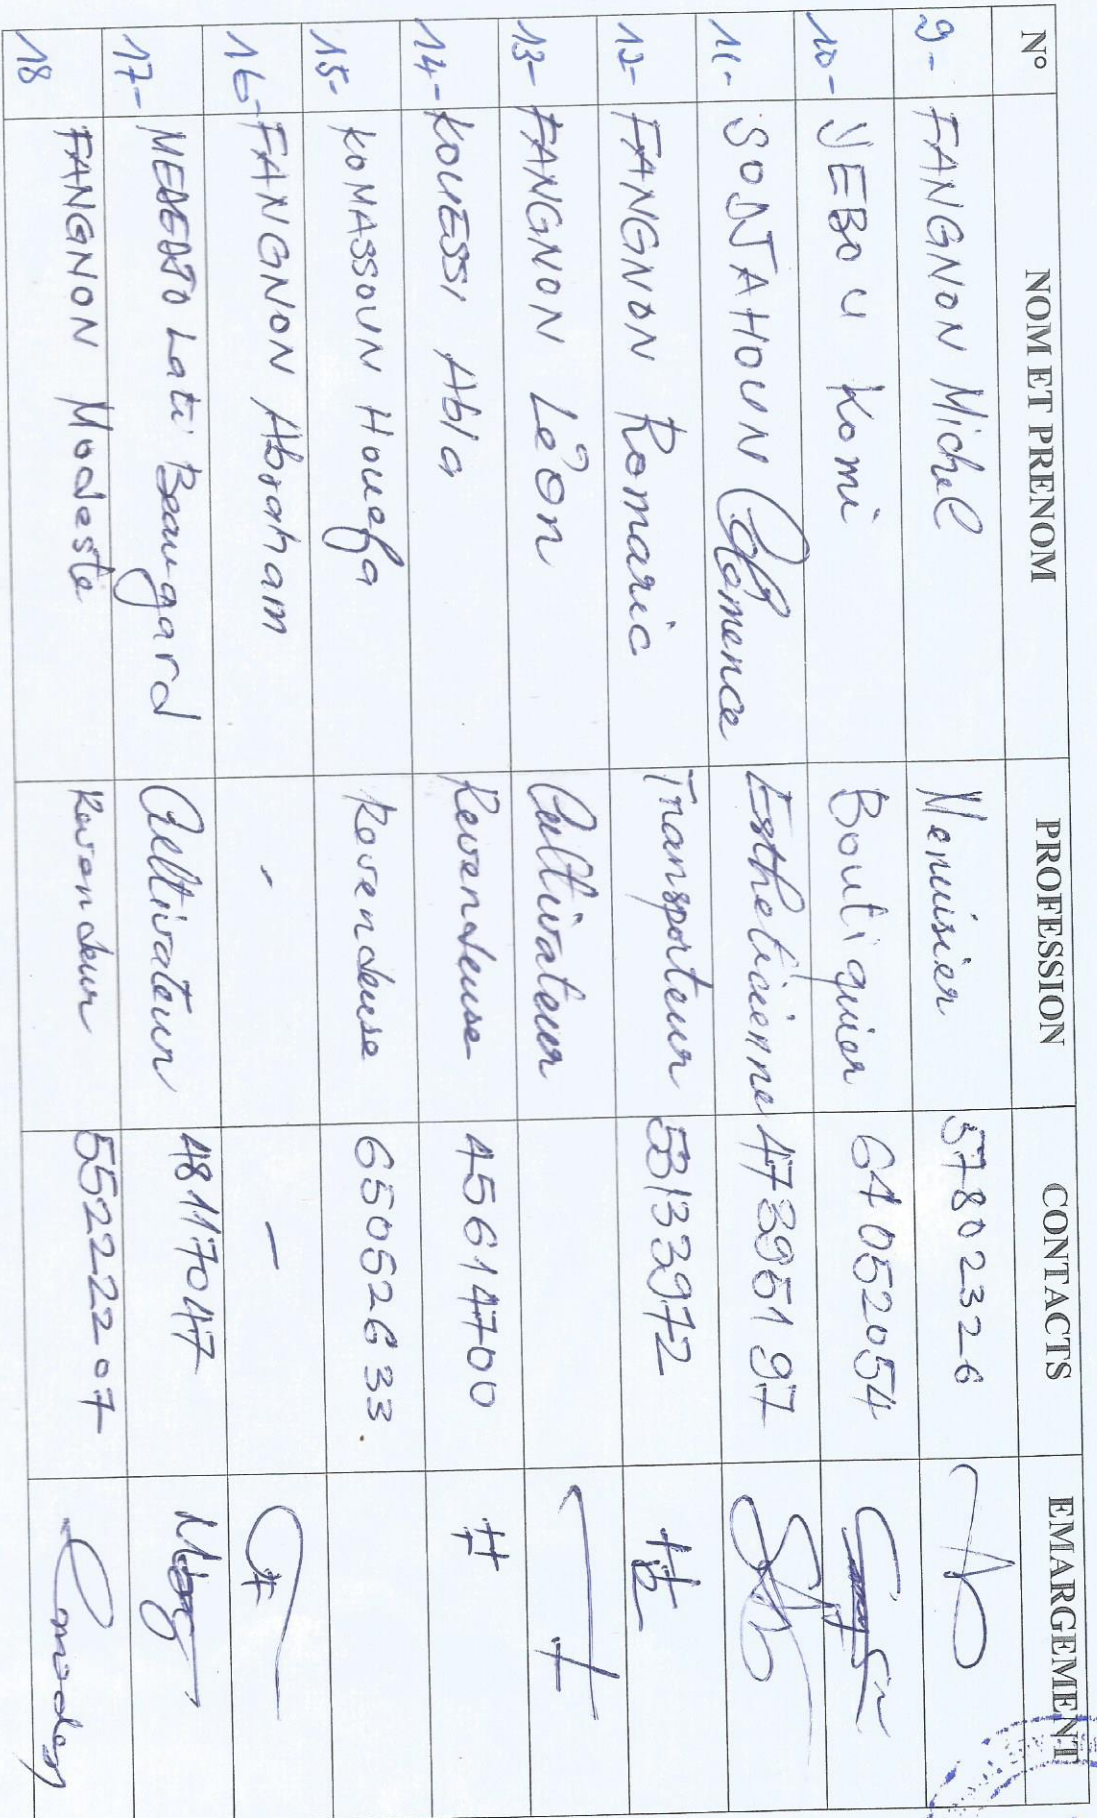 N° NOM ET PRENOM PROFESSION CONTACTS EMARGEMENT
9- FANGNON Michel Menuisier 57802326
10- YEBOU Komi Boutiquier 64052054
11- SODJAHOUN Clémence Estheticienne 473951 97
12- FANGNON Romaric Transporteur 53133972
13- FANGNON Léon Cultivateur
14- KOUESSI Abla Revendeuse 45614700
15- KOMASSOUN Houefa Rovendeuse 65052633.
16- FANGNON Abraham - -
17- Lati Beaugard Cultivateur 48117047
18 FANGNON Modeste Revendeur 55222207